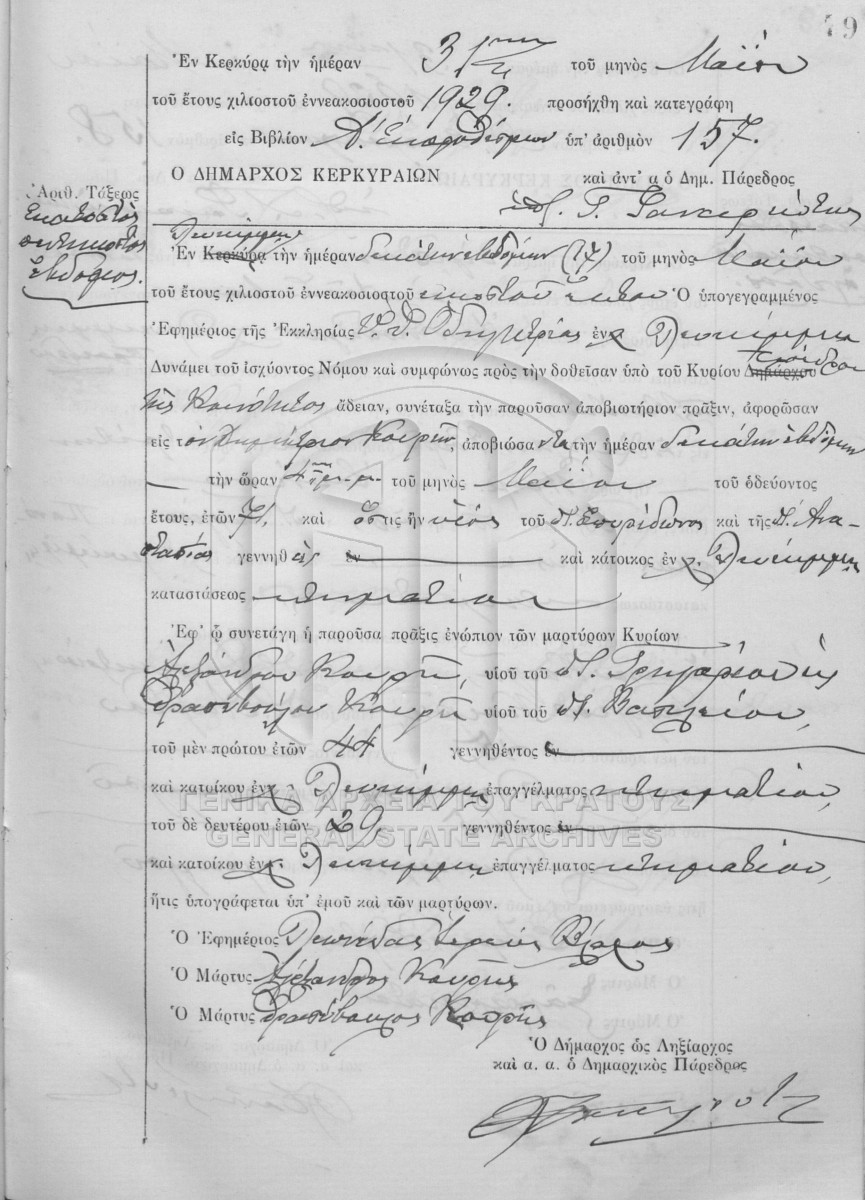 79
Ἐν Κερκύρᾳ τὴν ἡμέραν 31ην τοῦ μηνὸς Μαΐου
τοῦ ἔτους χιλιοστοῦ ἐννεακοσιοστοῦ 1929. προσήχθη καὶ κατεγράφη
εἰς Βιβλίον ὑπ' ἀριθμὸν 157.
Ο ΔΗΜΑΡΧΟΣ ΚΕΡΚΥΡΑΙΩΝ καὶ ἀντ' α ὁ Δημ. Πάρεδρος
Ἀριθ. Τάξεως
Ἑκατοστὸς
πεντηκοστὸς
ἕβδομος.
Λευκίμμῃ
Ἐν Κερκύρᾳ τὴν ἡμέραν δεκάτην ἑβδόμην (17) τοῦ μηνὸς Μαΐου
τοῦ ἔτους χιλιοστοῦ ἐννεακοσιοστοῦ εἰκοστοῦ Ὁ ὑπογεγραμμένος
Ἐφημέριος τῆς Ἐκκλησίας Ὁδηγητρίας ἐν Λευκίμμῃ
Δυνάμει τοῦ ἰσχύοντος Νόμου καὶ συμφώνως πρὸς τὴν δοθεῖσαν ὑπὸ τοῦ Κυρίου Δημάρχου Προέδρου
τῆς Κοινότητος ἄδειαν, συνέταξα τὴν παροῦσαν ἀποβιωτήριον πρᾶξιν, ἀφορῶσαν
εἰς τὸν Δημήτριον Κουρῆν, ἀποβιώσαντα τὴν ἡμέραν δεκάτην ἑβδόμην
τὴν ὥραν 4 π.μ. τοῦ μηνὸς Μαΐου τοῦ ὁδεύοντος
ἔτους, ἐτῶν 71, καὶ ὅστις ἦν υἱὸς τοῦ π. Σπυρίδωνος καὶ τῆς π. Ἀνα
στασίας γεννηθεὶς ἐν καὶ κάτοικος ἐν Λευκίμμῃ
καταστάσεως κτηματίου
Ἐφ' ᾧ συνετάγη ἡ παροῦσα πρᾶξις ἐνώπιον τῶν μαρτύρων Κυρίων
Ἀλεξάνδρου Κουρῆ, υἱοῦ τοῦ π. Γρηγορίου
Θρασυβούλου Κουρῆ υἱοῦ τοῦ π. Βασιλείου,
τοῦ μὲν πρώτου ἐτῶν 44 γεννηθέντος ἐν
καὶ κατοίκου ἐν Λευκίμμῃ ἐπαγγέλματος κτηματίου,
ΓΕΝΙΚΑ ΑΡΧΕΙΑ ΤΟΥ ΚΡΑΤΟΥΣ
τοῦ δὲ δευτέρου ἐτῶν 29 γεννηθέντος ἐν
GENERAL STATE ARCHIVES
καὶ κατοίκου ἐν Λευκίμμῃ ἐπαγγέλματος κτηματίου,
ἥτις ὑπογράφεται ὑπ' ἐμοῦ καὶ τῶν μαρτύρων.
Ὁ Ἐφημέριος Λεωνίδας Ἱερεὺς
Ὁ Μάρτυς Ἀλέξανδρος Κουρῆς
Ὁ Μάρτυς Θρασύβουλος Κουρῆς
Ὁ Δήμαρχος ὡς Ληξίαρχος
καὶ α. α. ὁ Δημαρχικὸς Πάρεδρος